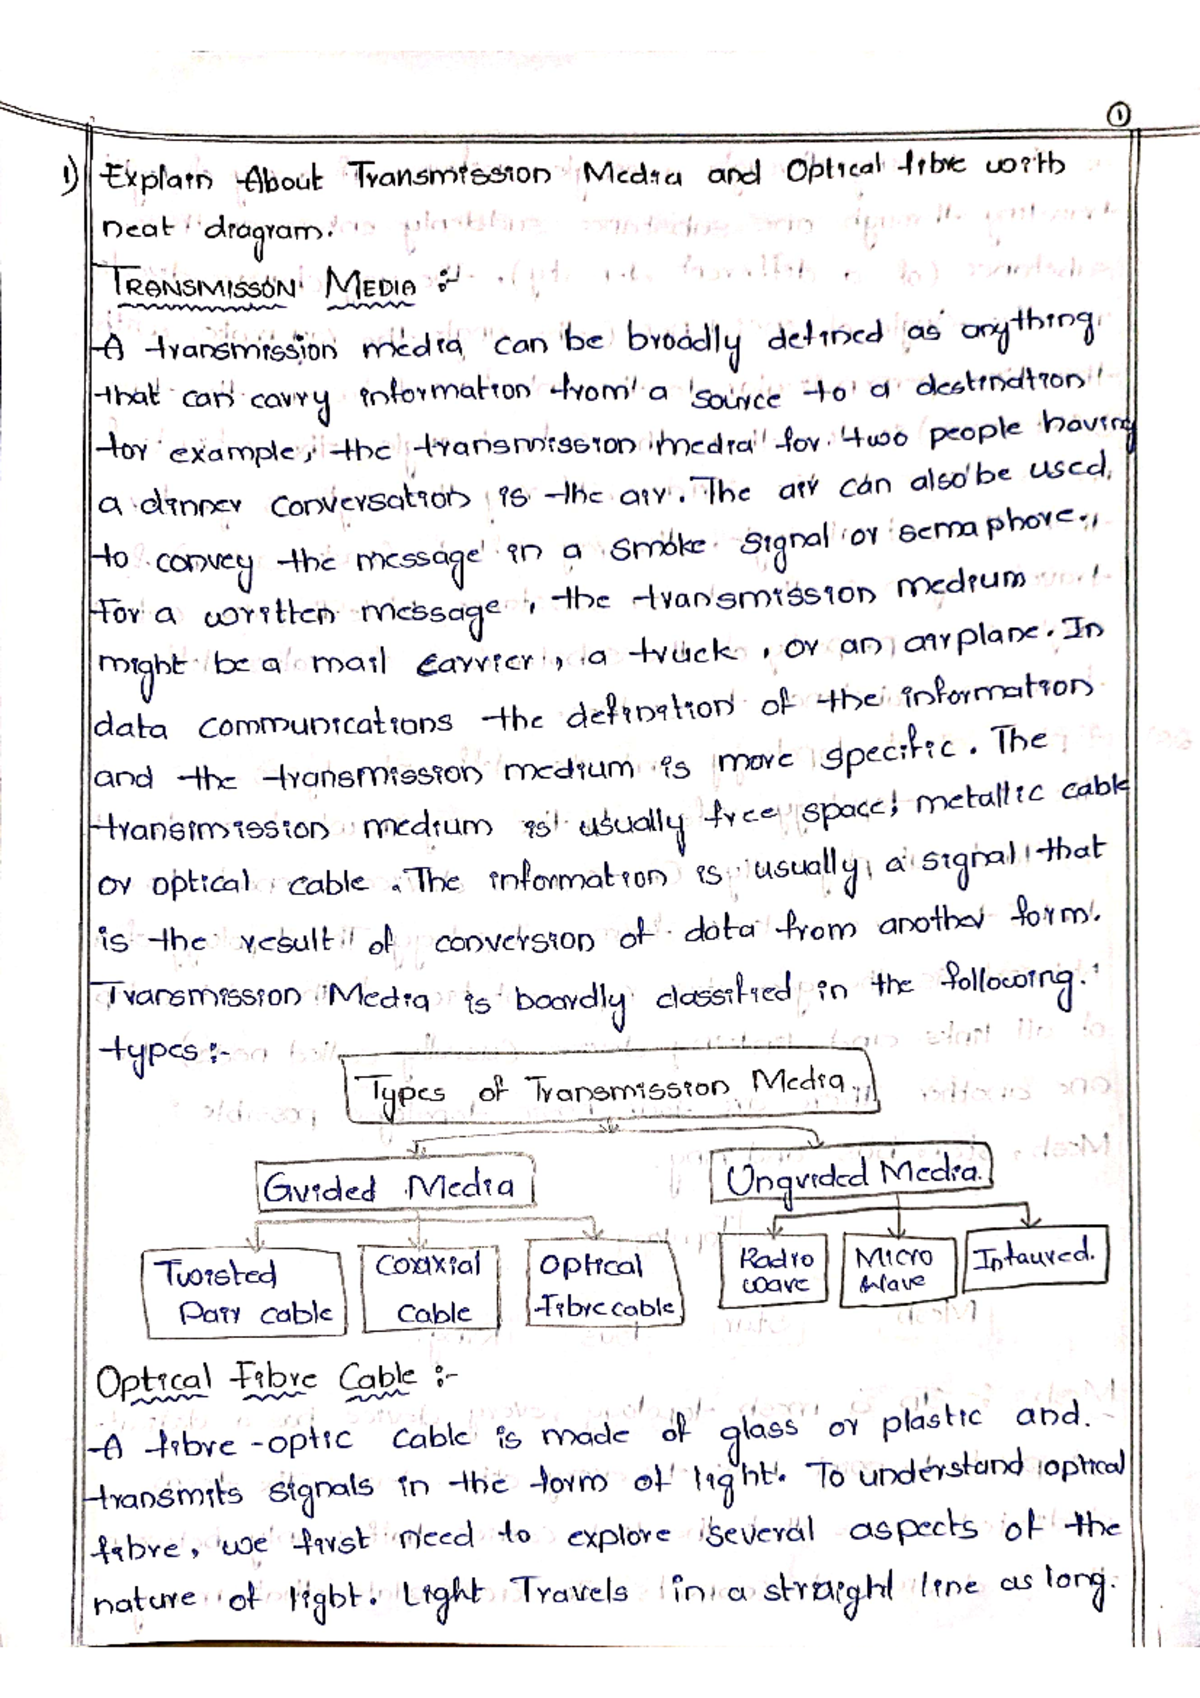 ①
1) Explain About Transmission Media and Optical fibre with
neat diagram.
TRANSMISSON MEDIA :-
A transmission media can be broadly defined as anything
that can carry information from a source to a destination
for example, the transmission media for two people having
a dinner conversation is the air. The air can also be used
to convey the message in a smoke signal or semaphore.
For a written message, the transmission medium
might be a mail carrier, a truck, or an airplane. In
data communications the definition of the information
and the transmission medium is more specific. The
transimission medium is usually free space, metallic cable
or optical cable. The information is usually a signal that
is the result of conversion of data from another form.
Transmission Media is boardly classified in the following.
types :-
Types of Transmission Media.
Guided Media
Unguided Media.
Twisted
Pair cable
Coaxial
Cable
Optical
Fibre cable
Radio
wave
Micro
Wave
Infaured.
Optical Fibre Cable :-
A fibre-optic cable is made of glass or plastic and.
transmits signals in the form of light. To understand optical
fibre, we first need to explore several aspects of the
nature of light. Light Travels in a straight line as long.